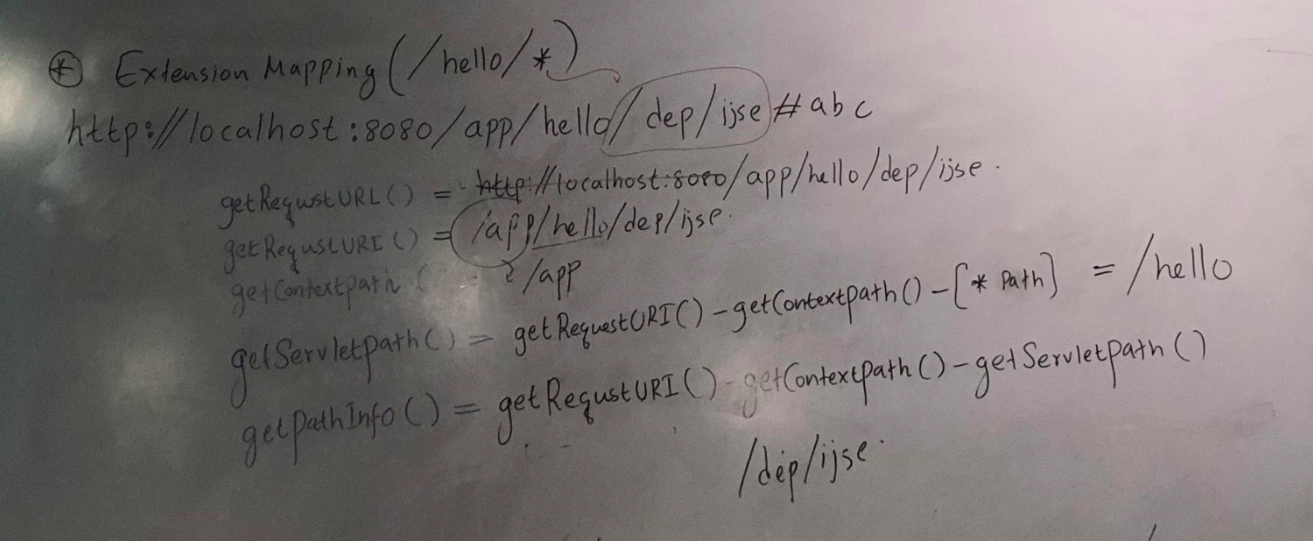 * Extension Mapping (/hello/*)
http://localhost:8080/app/hello/dep/ijse#abc
getRequstURL() = http://localhost:8080/app/hello/dep/ijse.
getRequstURI() = /app/hello/dep/ijse.
getContextpath ( /app
getServletpath() = getRequestURI() - getContextpath() - [* Path] = /hello
getpathInfo() = getRequstURI() - getContextpath() - getServletpath()
/dep/ijse.